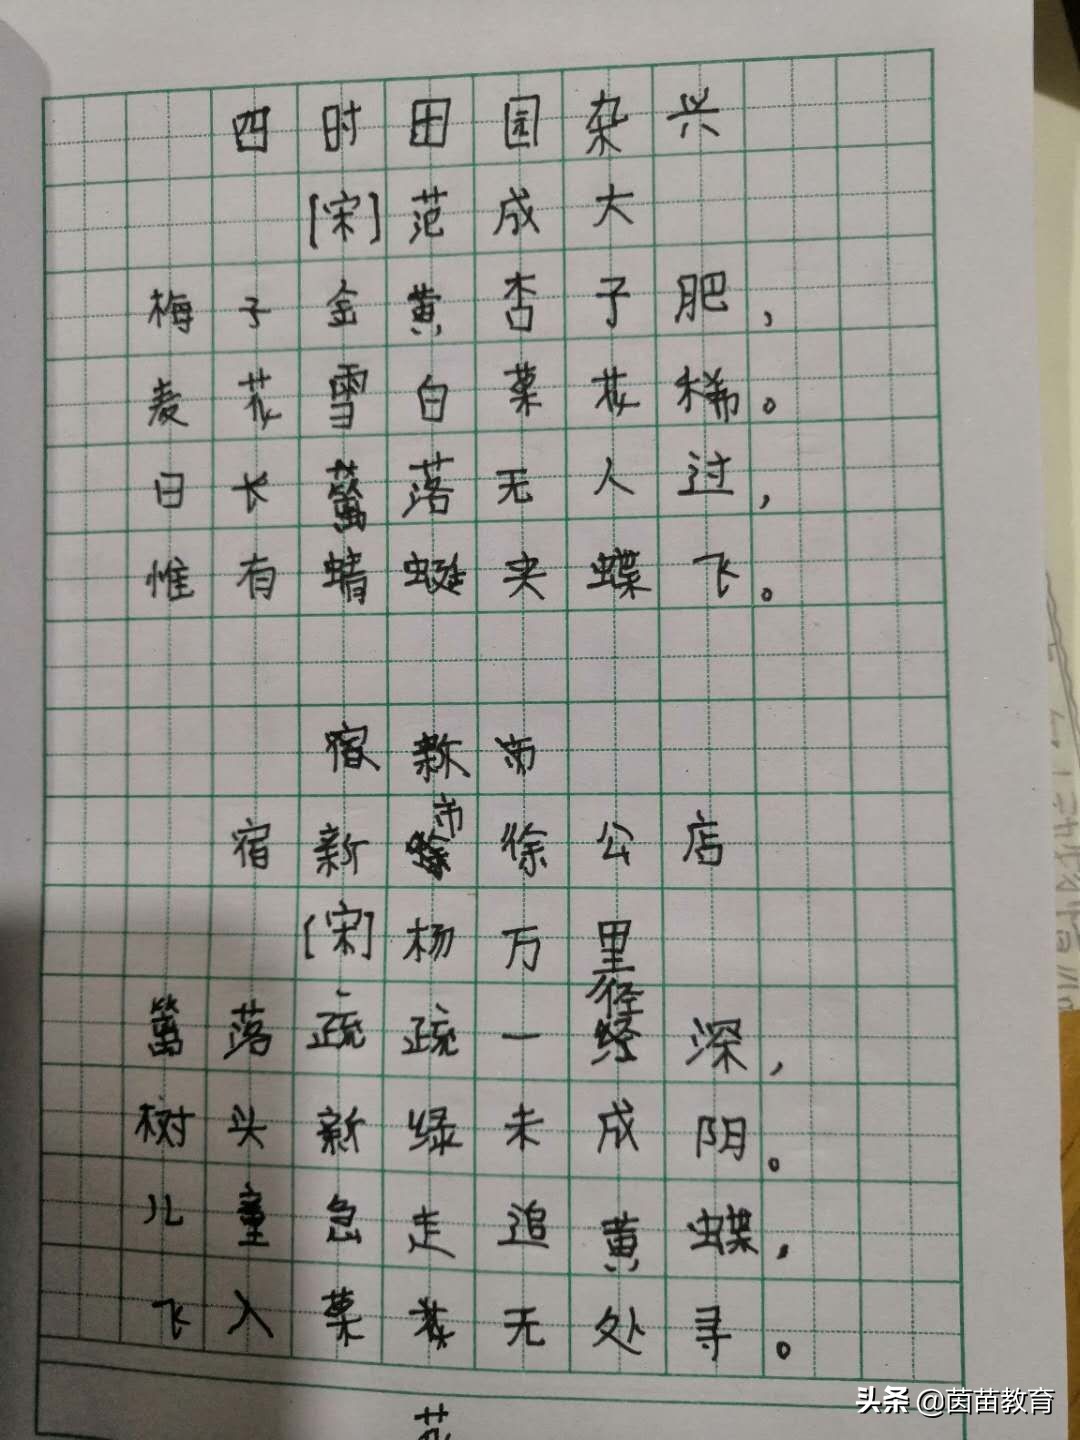 四时田园杂兴
[宋]范成大
梅子金黄杏子肥，
麦花雪白菜花稀。
日长篱落无人过，
惟有蜻蜓夹蝶飞。
宿新市
宿新市徐公店
[宋]杨万里
篱落疏疏一径深，
树头新绿未成阴。
儿童急走追黄蝶，
飞入菜花无处寻。
头条 @茵苗教育